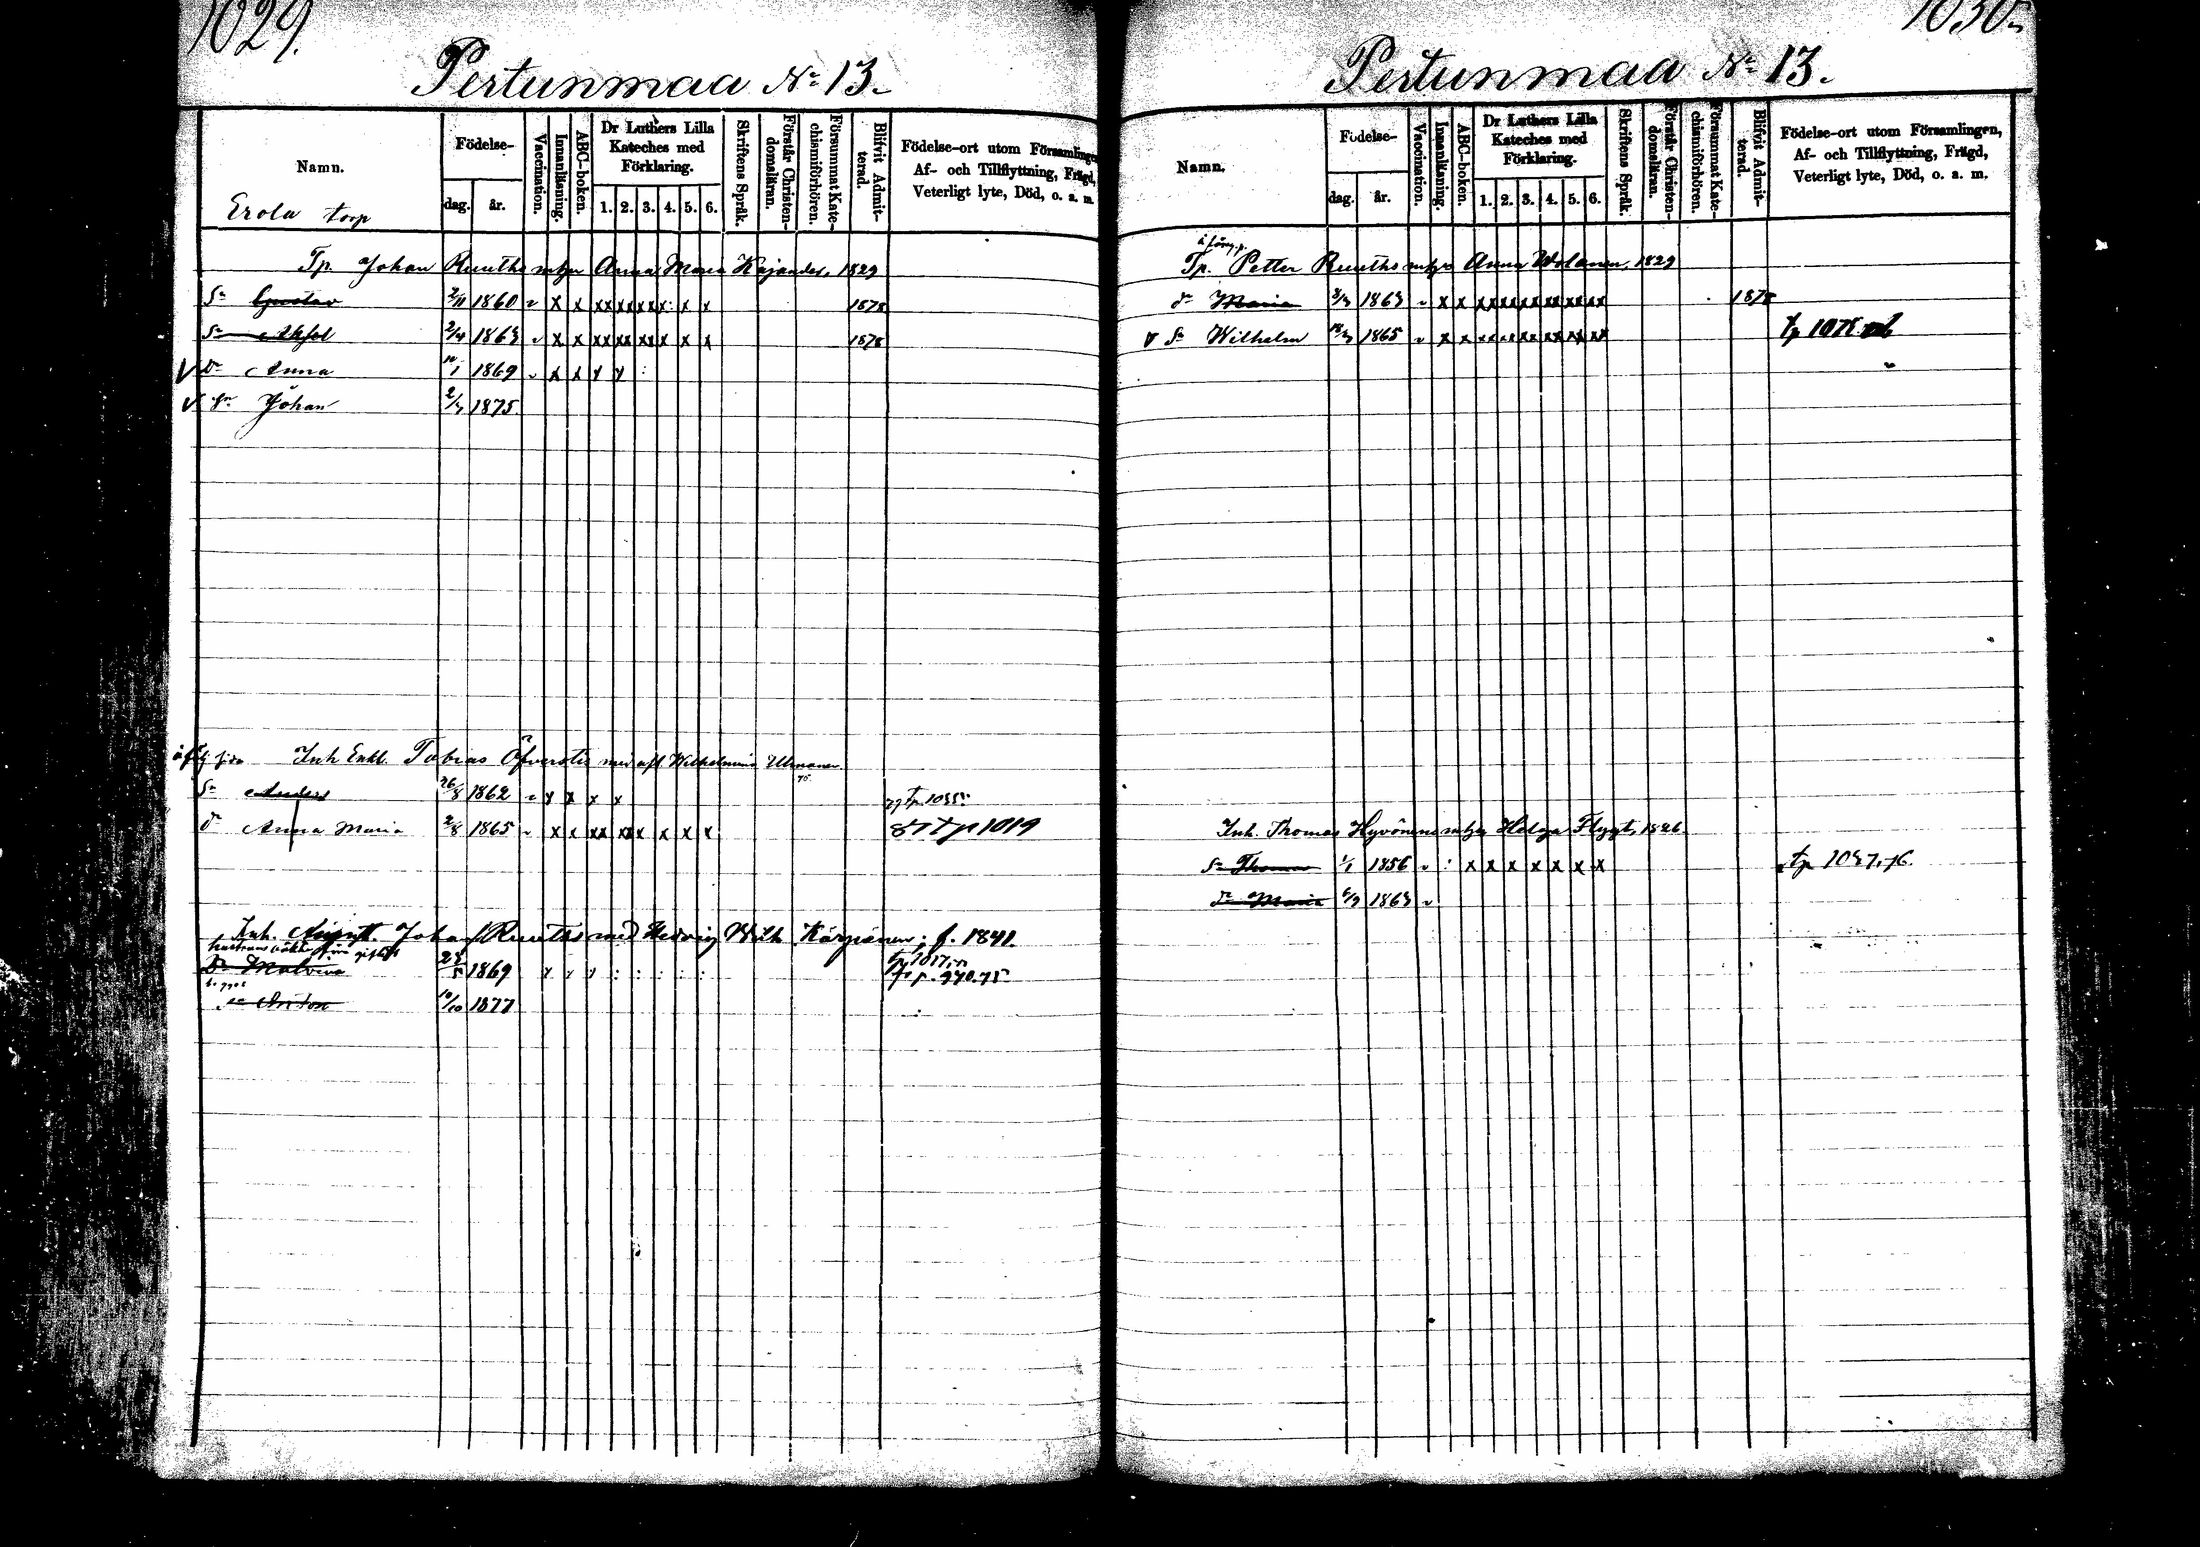 1029.
Pertunmaa No 13.
Namn.
Födelse-
dag.
år.
Vaccination.
Innanläsning.
ABC-boken.
Dr Luthers Lilla
Kateches med
Förklaring.
1. 2. 3. 4. 5. 6.
Skriftens Språk.
Förstår Christen-
domsläran.
Försummat Kate-
chismiförhören.
Blifvit Admit-
terad.
Födelse-ort utom Församlingen,
Af- och Tillflyttning, Frägd,
Veterligt lyte, Död, o. a. m.
Erola torp
Tp. Johan Ruuths m hu Anna Maria Kajander, 1829
Sn Gustav 2/11 1860 v x x xx xx xx x: x x 1878
Sn Axel 2/4 1863 v x x xx xx xx x x x 1878
v Dr Anna 10/1 1869 v x x x x :
v Sn Johan 2/7 1875
Inh Enkl. Tobias Öfversti med afl Wilhelmina Ulmanen
Sn Anders 26/8 1862 v x x x x 77 tp. 1055
dr Anna Maria 2/8 1865 v x x xx xx x x x x 81 tp 1019
Inh. August. Johan Ruuths med Hedvig Wilh Kärpänen; f. 1841.
Dr Malvina 28/5 1869 x x x : : : : : fr p. 970.75
Sn Anton 10/10 1877
1030.
Pertunmaa No 13.
Namn.
Födelse-
dag.
år.
Vaccination.
Innanläsning.
ABC-boken.
Dr Luthers Lilla
Kateches med
Förklaring.
1. 2. 3. 4. 5. 6.
Skriftens Språk.
Förstår Christen-
domsläran.
Försummat Kate-
chismiförhören.
Blifvit Admit-
terad.
Födelse-ort utom Församlingen,
Af- och Tillflyttning, Frägd,
Veterligt lyte, Död, o. a. m.
Tp. Petter Ruuths m hu Anna Wolanen, 1829
dr Maria 1863 v x x xx xx xx xx xx xx 1878
v Sn Wilhelm 1865 v x x xx xx xx xx xx xx tp 1078
Inh. Thomas Hyvönens m hu Helga Flygt, 1826
Sn Thomas 1/1 1856 v : x x x x x x x tp 1037.76.
dr Maria 6/9 1863 v